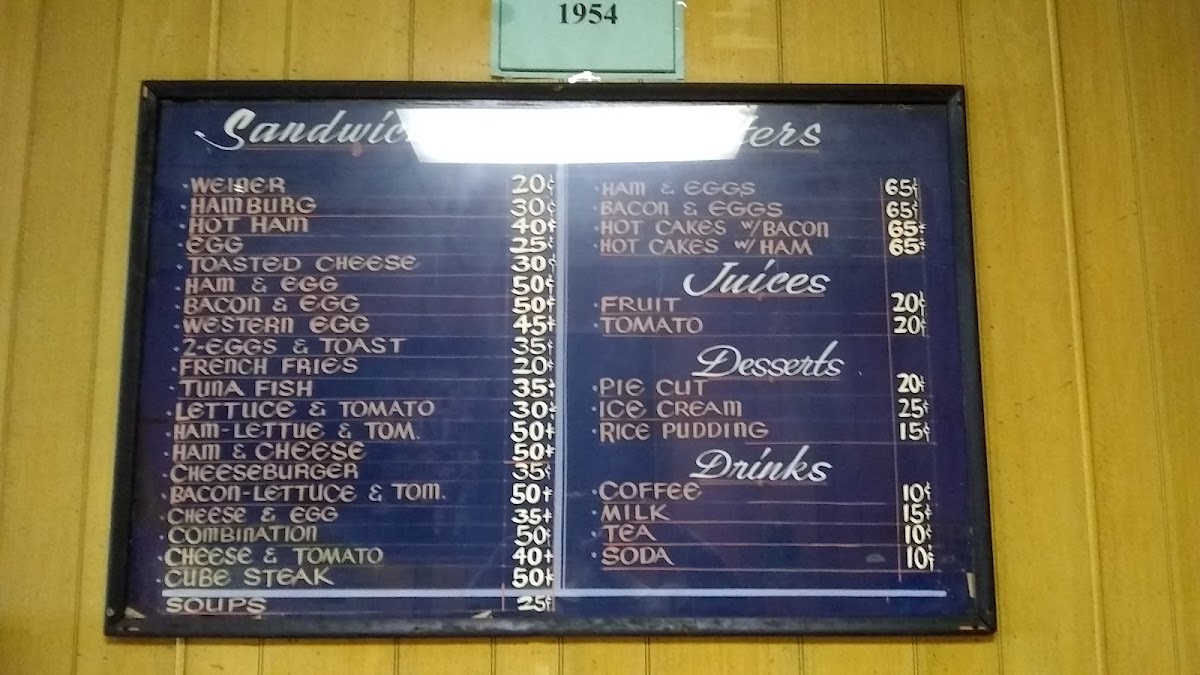 1954
Sandwic
ters
WEINER 20¢
HAMBURG 30¢
HOT HAM 40¢
EGG 25¢
TOASTED CHEESE 30¢
HAM & EGG 50¢
BACON & EGG 50¢
WESTERN EGG 45¢
2-EGGS & TOAST 35¢
FRENCH FRIES 20¢
TUNA FISH 35¢
LETTUCE & TOMATO 30¢
HAM-LETTUE & TOM. 50¢
HAM & CHEESE 50¢
CHEESEBURGER 35¢
BACON-LETTUCE & TOM. 50¢
CHEESE & EGG 35¢
COMBINATION 50¢
CHEESE & TOMATO 40¢
CUBE STEAK 50¢
SOUPS 25¢
HAM & EGGS 65¢
BACON & EGGS 65¢
HOT CAKES w/BACON 65¢
HOT CAKES w/HAM 65¢
Juices
FRUIT 20¢
TOMATO 20¢
Desserts
PIE CUT 20¢
ICE CREAM 25¢
RICE PUDDING 15¢
Drinks
COFFEE 10¢
MILK 15¢
TEA 10¢
SODA 10¢